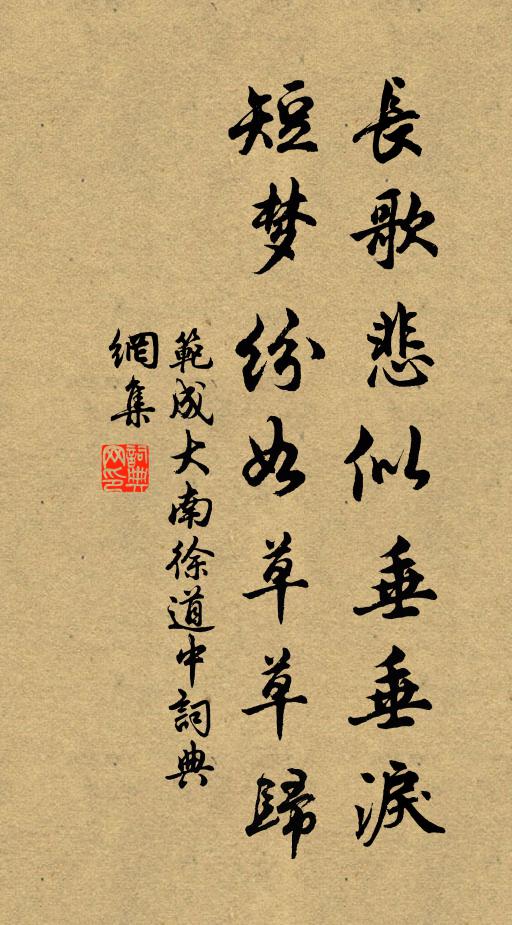 長歌悲似垂垂淚
短梦紛如草草歸
範成大南徐道中詞典
網集
詞典
网印